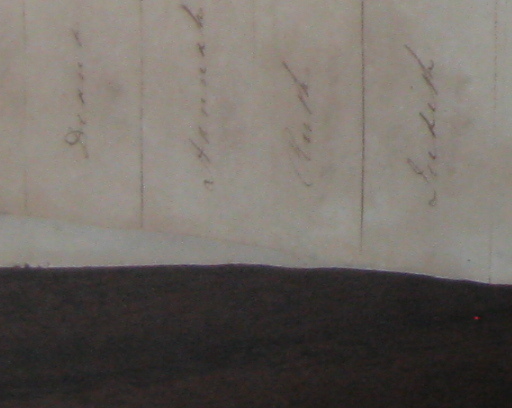 Deana
Hannah
Ruth
Judith